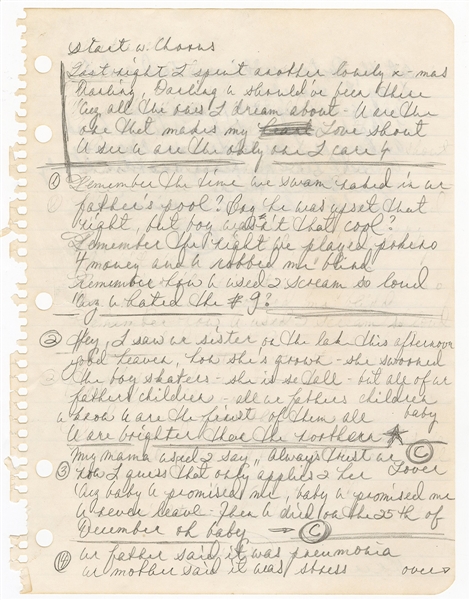 Start w. Chorus
Last night I spent another lonely x-mas
Darling, Darling U should've been there
Cuz all the ones I dream about - U are the
one that makes my Love shout
U see U are the only one I care 4
① Remember the time we swam naked in ur
father's pool? Boy he was upset that
night, but boy wasn't that cool?
Remember the night we played pokeno
4 money and U robbed me blind
Remember how U used 2 scream so loud
Cuz U hated the #9?
② Hey, I saw ur sister on the lake this afternoon
good heaven, how she's grown - she swooned
the boy skaters - she is so tall - but all of ur
fathers children - all ur fathers children
U know U are the finest of them all baby
U are brighter than the northern ★
My mama used 2 say "always trust ur Lover Ⓒ
③ now I guess that only applies 2 her
Cuz baby U promised me, baby U promised me
U never leave. Then U died on the 25th of
December oh baby → Ⓒ
④ ur father said it was pneumonia
ur mother said it was stress over